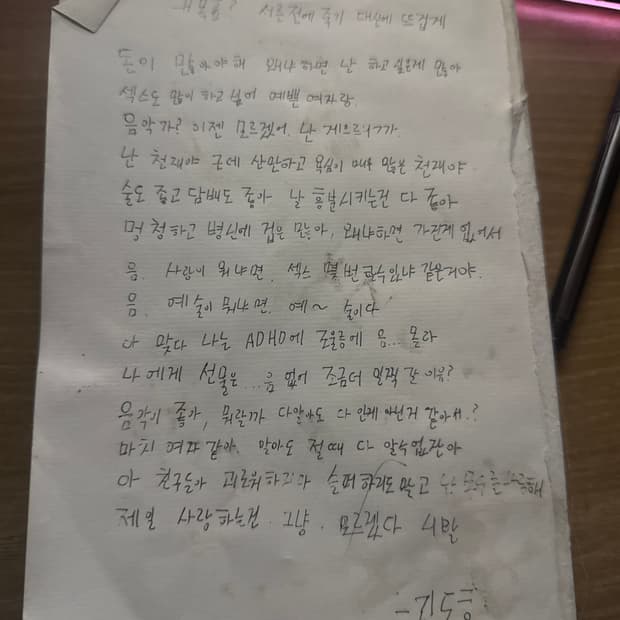 서른전에 죽기 대신에 뜨겁게
돈이 많아야해 왜냐하면 난 하고싶은게 많아
섹스도 많이 하고싶어 예쁜 여자랑.
음악가? 이젠 모르겠어. 난 게으르니까.
난 천재야 근데 산만하고 욕심이 매우 많은 천재야.
술도 좋고 담배도 좋아 날 흥분시키는건 다 좋아
멍청하고 병신에 겁은 많아, 왜냐하면 가진게 없어서
음. 사랑이 뭐냐면. 섹스 몇번 할수있냐 같은거야.
음. 예술이 뭐냐면. 예~ 술이다
다 맞다 나는 ADHD에 조울증에 음... 몰라
나에게 선물은 ... 음 없어 조금더 일찍 갈 이유?
음악이 좋아, 뭐랄까 다알아도 다 아닌거 같아서.?
마치 여자 같아. 알아도 절때 다 알수 없잖아
아 친구들아 괴로워하지마 슬퍼하지도말고 난 모두를
제일 사랑하는건. 그냥. 모르겠다 시발